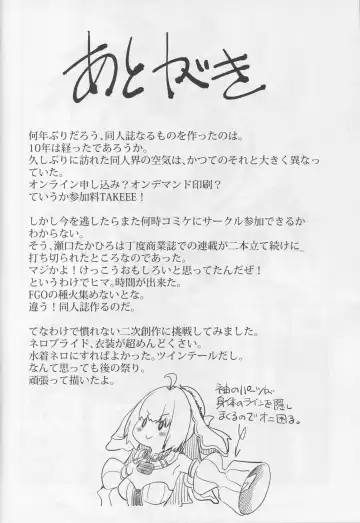 あとがき
何年ぶりだろう、同人誌なるものを作ったのは。
10年は経ったであろうか。
久しぶりに訪れた同人界の空気は、かつてのそれと大きく異なっ
ていた。
オンライン申し込み？オンデマンド印刷？
ていうか参加料TAKEEE！
しかし今を逃したらまた何時コミケにサークル参加できるか
わからない。
そう、瀬口たかひろは丁度商業誌での連載が二本立て続けに
打ち切られたところなのであった。
マジかよ！けっこうおもしろいと思ってたんだぜ！
というわけでヒマ。時間が出来た。
FGOの種火集めないとな。
違う！同人誌作るのだ。
てなわけで慣れない二次創作に挑戦してみました。
ネロブライド、衣装が超めんどくさい。
水着ネロにすればよかった。ツインテールだし。
なんて思っても後の祭り。
頑張って描いたよ。
袖のパーツが
身体のラインを隠し
まくるのでオニ困る。